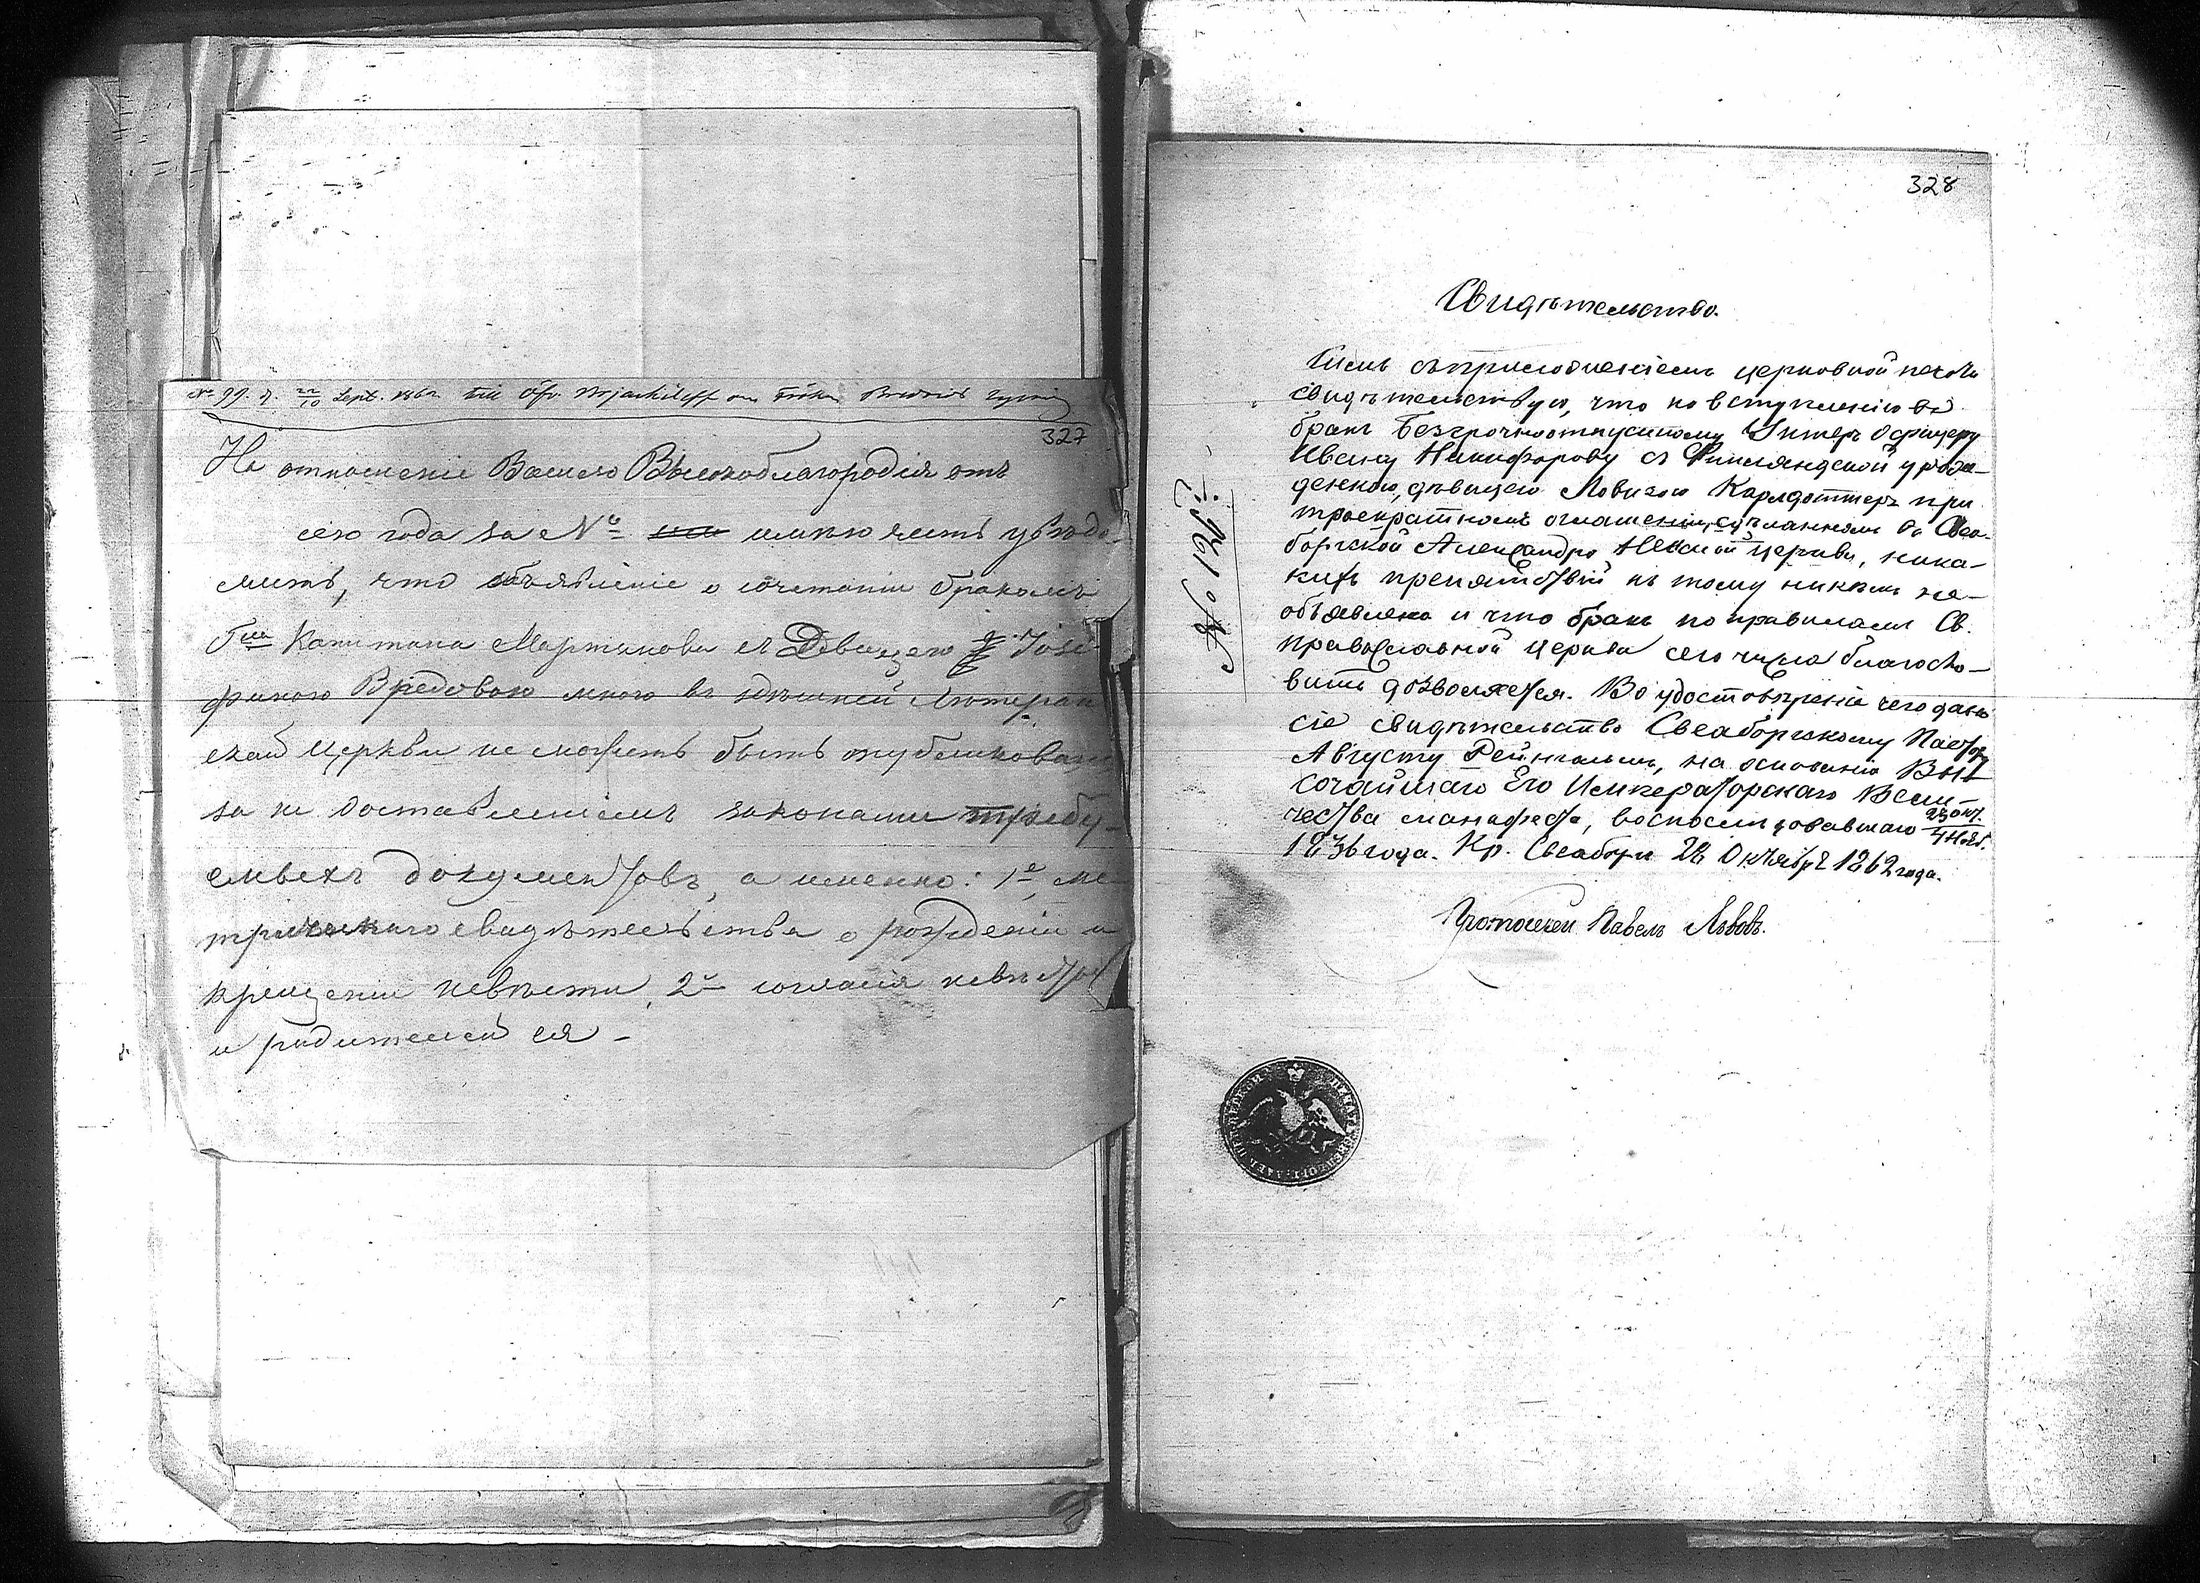 № 99. d. 22/10 Sept. 1862 till Öfv. om Fröken
327
На отношеніе Вашего Высокоблагородія отъ
сего года за № имѣю честь увѣдо-
мить, что объявленіе о сочетаніи бракомъ
Капитана Мартынова съ Дѣвицею Іозе-
финою Вредовою мною въ здѣшней Лютеран
ской Церкви не можетъ быть опубликован
за не доставленіемъ законами требу-
емыхъ документовъ, а именно: 1е, ме
трическаго свидѣтельства о рожденіи и
крещеніи невѣсты, 2е согласія невѣсты
и родителей ея –
328
Свидѣтельство.
Симъ съ приложеніемъ церковной печати
свидѣтельствую, что ко вступленію въ
бракъ Безсрочноотпускному Унтеръ Офицеру
Ивану Никифорову съ Финляндской урож-
денкою, дѣвицею Ловизою Карлдоттеръ при
троекратномъ оглашеніи, сдѣланномъ въ Свеа-
боргской Александро Невской церкви, ника-
кихъ препятствій къ тому никѣмъ не-
объявлено и что бракъ по правиламъ Св.
православной Церкви сего числа благосло-
вить дозволяется. Во удостовѣреніе чего дано
сіе свидѣтельство Свеаборгскому Пастору
Августу Рейнгольмъ, на основаніи Вы-
сочайшаго Его Императорскаго Вели-
чества манифеста, воспослѣдовавшаго 23 Окт./4 Нояб.
1836 года. Кр. Свеаборгъ 28 Октября 1862 года.
Протоіерей Павелъ Львовъ.
№ 125.